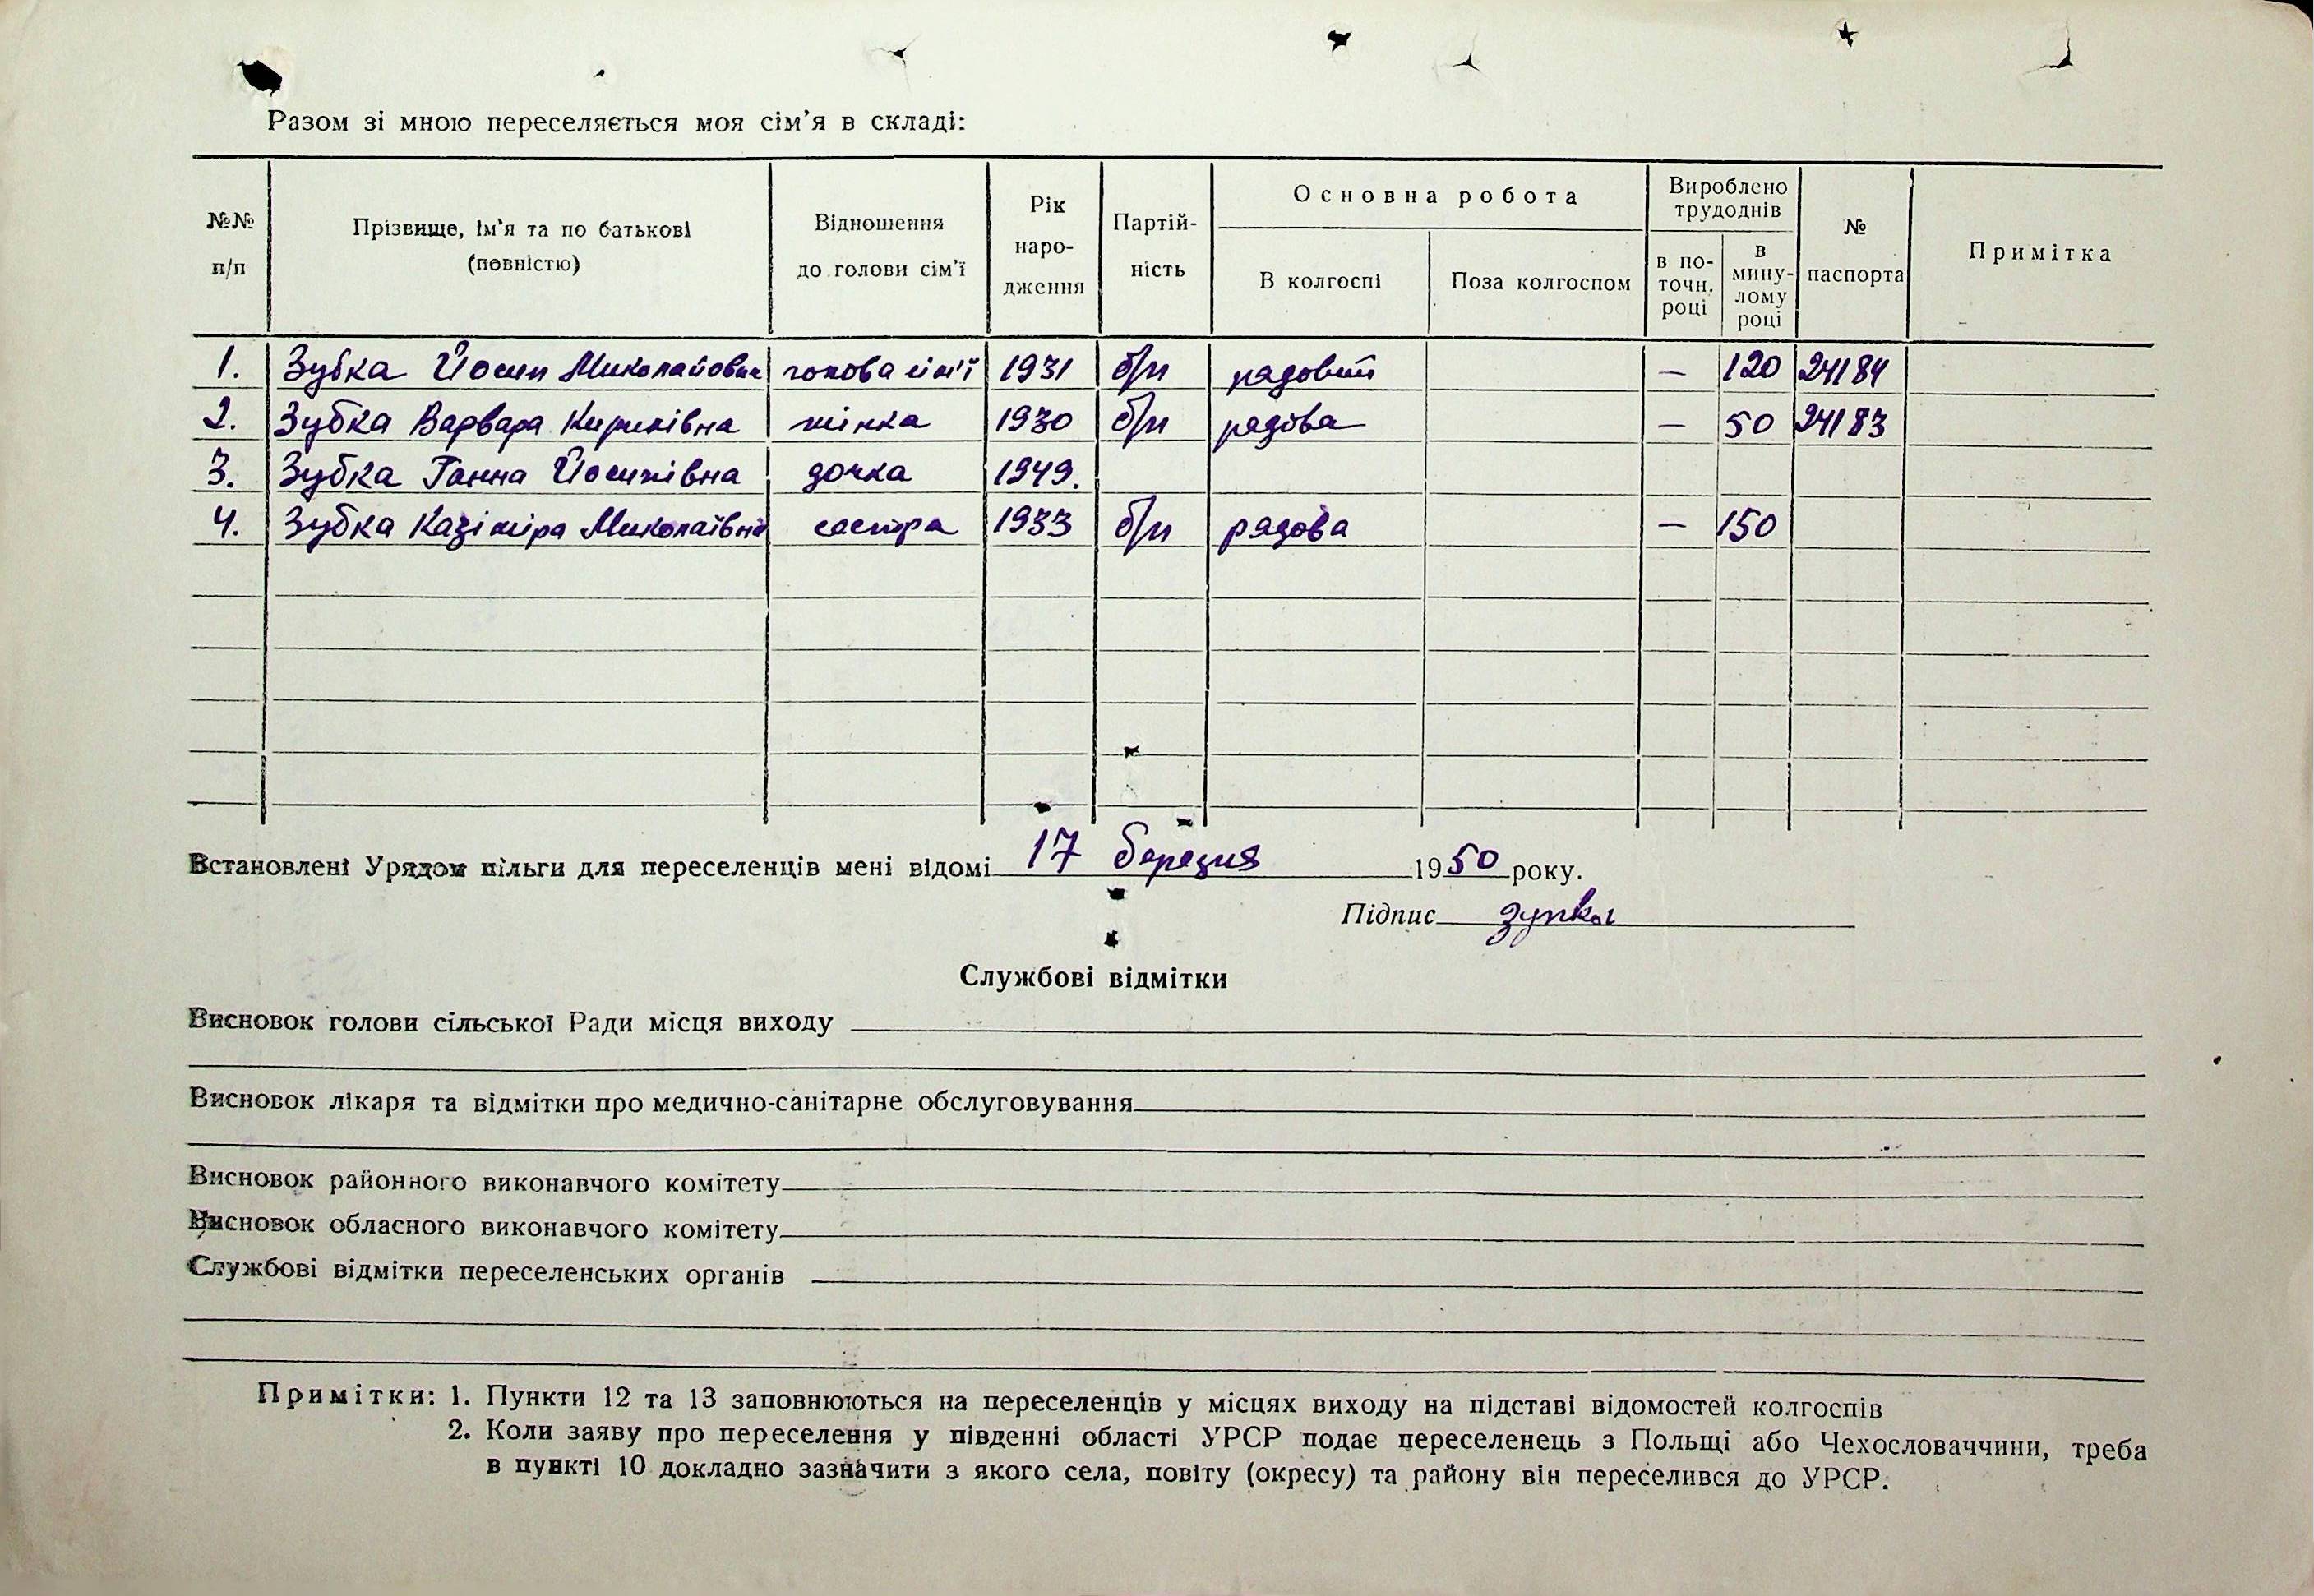 Разом зі мною переселяється моя сім'я в складі:
№№ п/п | Прізвище, ім'я та по батькові (повністю) | Відношення до голови сім'ї | Рік народження | Партійність | Основна робота | Вироблено трудоднів | № паспорта | Примітка
В колгоспі | Поза колгоспом | в поточн. році | в минулому році
1. Зубка Йосип Миколайович голова сім'ї 1931 б/п рядовий — 120 24184
2. Зубка Варвара Кирилівна жінка 1930 б/п рядова — 50 24183
3. Зубка Ганна Йосипівна дочка 1949.
4. Зубка Казіміра Миколаївна сестра 1933 б/п рядова — 150
Встановлені Урядом пільги для переселенців мені відомі 17 березня 1950 року.
Підпис зупка
Службові відмітки
Висновок голови сільської Ради місця виходу
Висновок лікаря та відмітки про медично-санітарне обслуговування
Висновок районного виконавчого комітету
Висновок обласного виконавчого комітету
Службові відмітки переселенських органів
Примітки: 1. Пункти 12 та 13 заповнюються на переселенців у місцях виходу на підставі відомостей колгоспів
2. Коли заяву про переселення у південні області УРСР подає переселенець з Польщі або Чехословаччини, треба
в пункті 10 докладно зазначити з якого села, повіту (окресу) та району він переселився до УРСР.